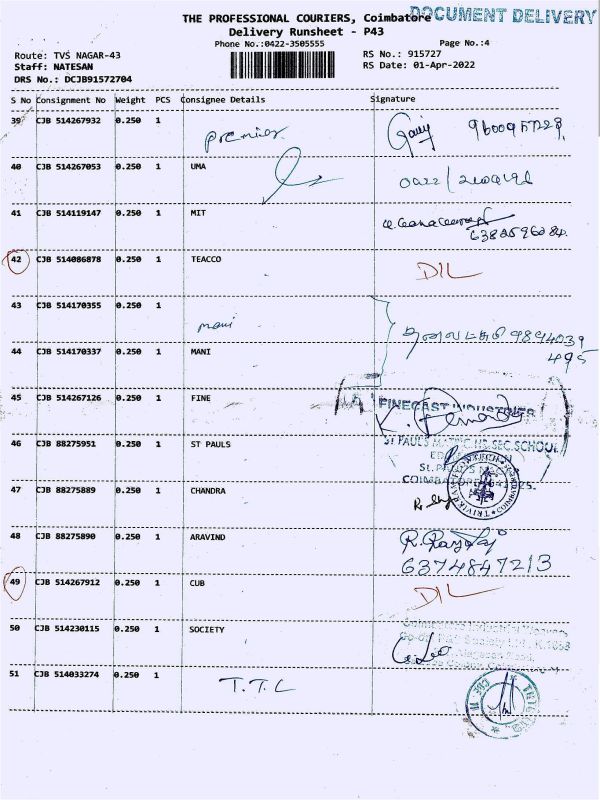 THE PROFESSIONAL COURIERS, Coimbatore
DOCUMENT DELIVERY
Delivery Runsheet - P43
Phone No.:0422-3505555
Page No.:4
Route: TVS NAGAR-43
RS No.: 915727
Staff: NATESAN
RS Date: 01-Apr-2022
DRS No.: DCJB91572704
S No Consignment No Weight PCS Consignee Details Signature
39 CJB 514267932 0.250 1 Premier
40 CJB 514267053 0.250 1 UMA
41 CJB 514119147 0.250 1 MIT
42 CJB 514086878 0.250 1 TEACCO DIL
43 CJB 514170355 0.250 1 mani
44 CJB 514170337 0.250 1 MANI 9894039
495
45 CJB 514267126 0.250 1 FINE FINECAST INDUSTRIES
46 CJB 88275951 0.250 1 ST PAULS ST PAUL'S MATRIC.HR.SEC.SCHOOL
47 CJB 88275889 0.250 1 CHANDRA
48 CJB 88275890 0.250 1 ARAVIND
6374847213
49 CJB 514267912 0.250 1 CUB DIL
50 CJB 514230115 0.250 1 SOCIETY
51 CJB 514033274 0.250 1 T.T.C